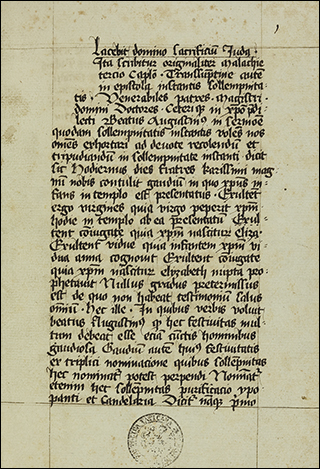 Placebit domino sacrificium Juda.
Ita scribitur originaliter malachie
tercio caplo. Transsumptive aute
in epistola instantis sollempnita
tis. Venerabiles patres. magistri
domini Doctores. Ceterique in xpo di
lecti Beatus Augustinus in sermoe
quodam sollempnitatis instantis voles nos
omes exhortari ad devote recolendu et
tripudiandu in sollempnitate instanti dicit
sic Hodiernus dies fratres karissimi mag
nu nobis contulit gaudiu in quo xpus in
fans in templo est presentatus. Exultet
ergo virgines quia virgo peperit xpm
hodie in templo ab ea presentatu Exul
tent coniugate quia xpm nascitur
Exultent vidue quia infantem xpm vi
dua anna cognovit Exultent coniugate
quia xpm nascitur elyzabeth nupta pro
phetavit Nullus gradus pretermissus
est de quo non habeat testimoniu salus
omiu. Hec ille. In quibus verbis voluit
beatus Augustinus q hec festivitas mul
tum debeat esse cunctis hominibus
gaudiosa Gaudiu aute huius festivitatis
ex triplici nominacione quibus sollepnitas
hec nominat potest perpendi Nominat
etenim hec sollepnitas purificatio ypo
panti et candelaria Dicit naque primo